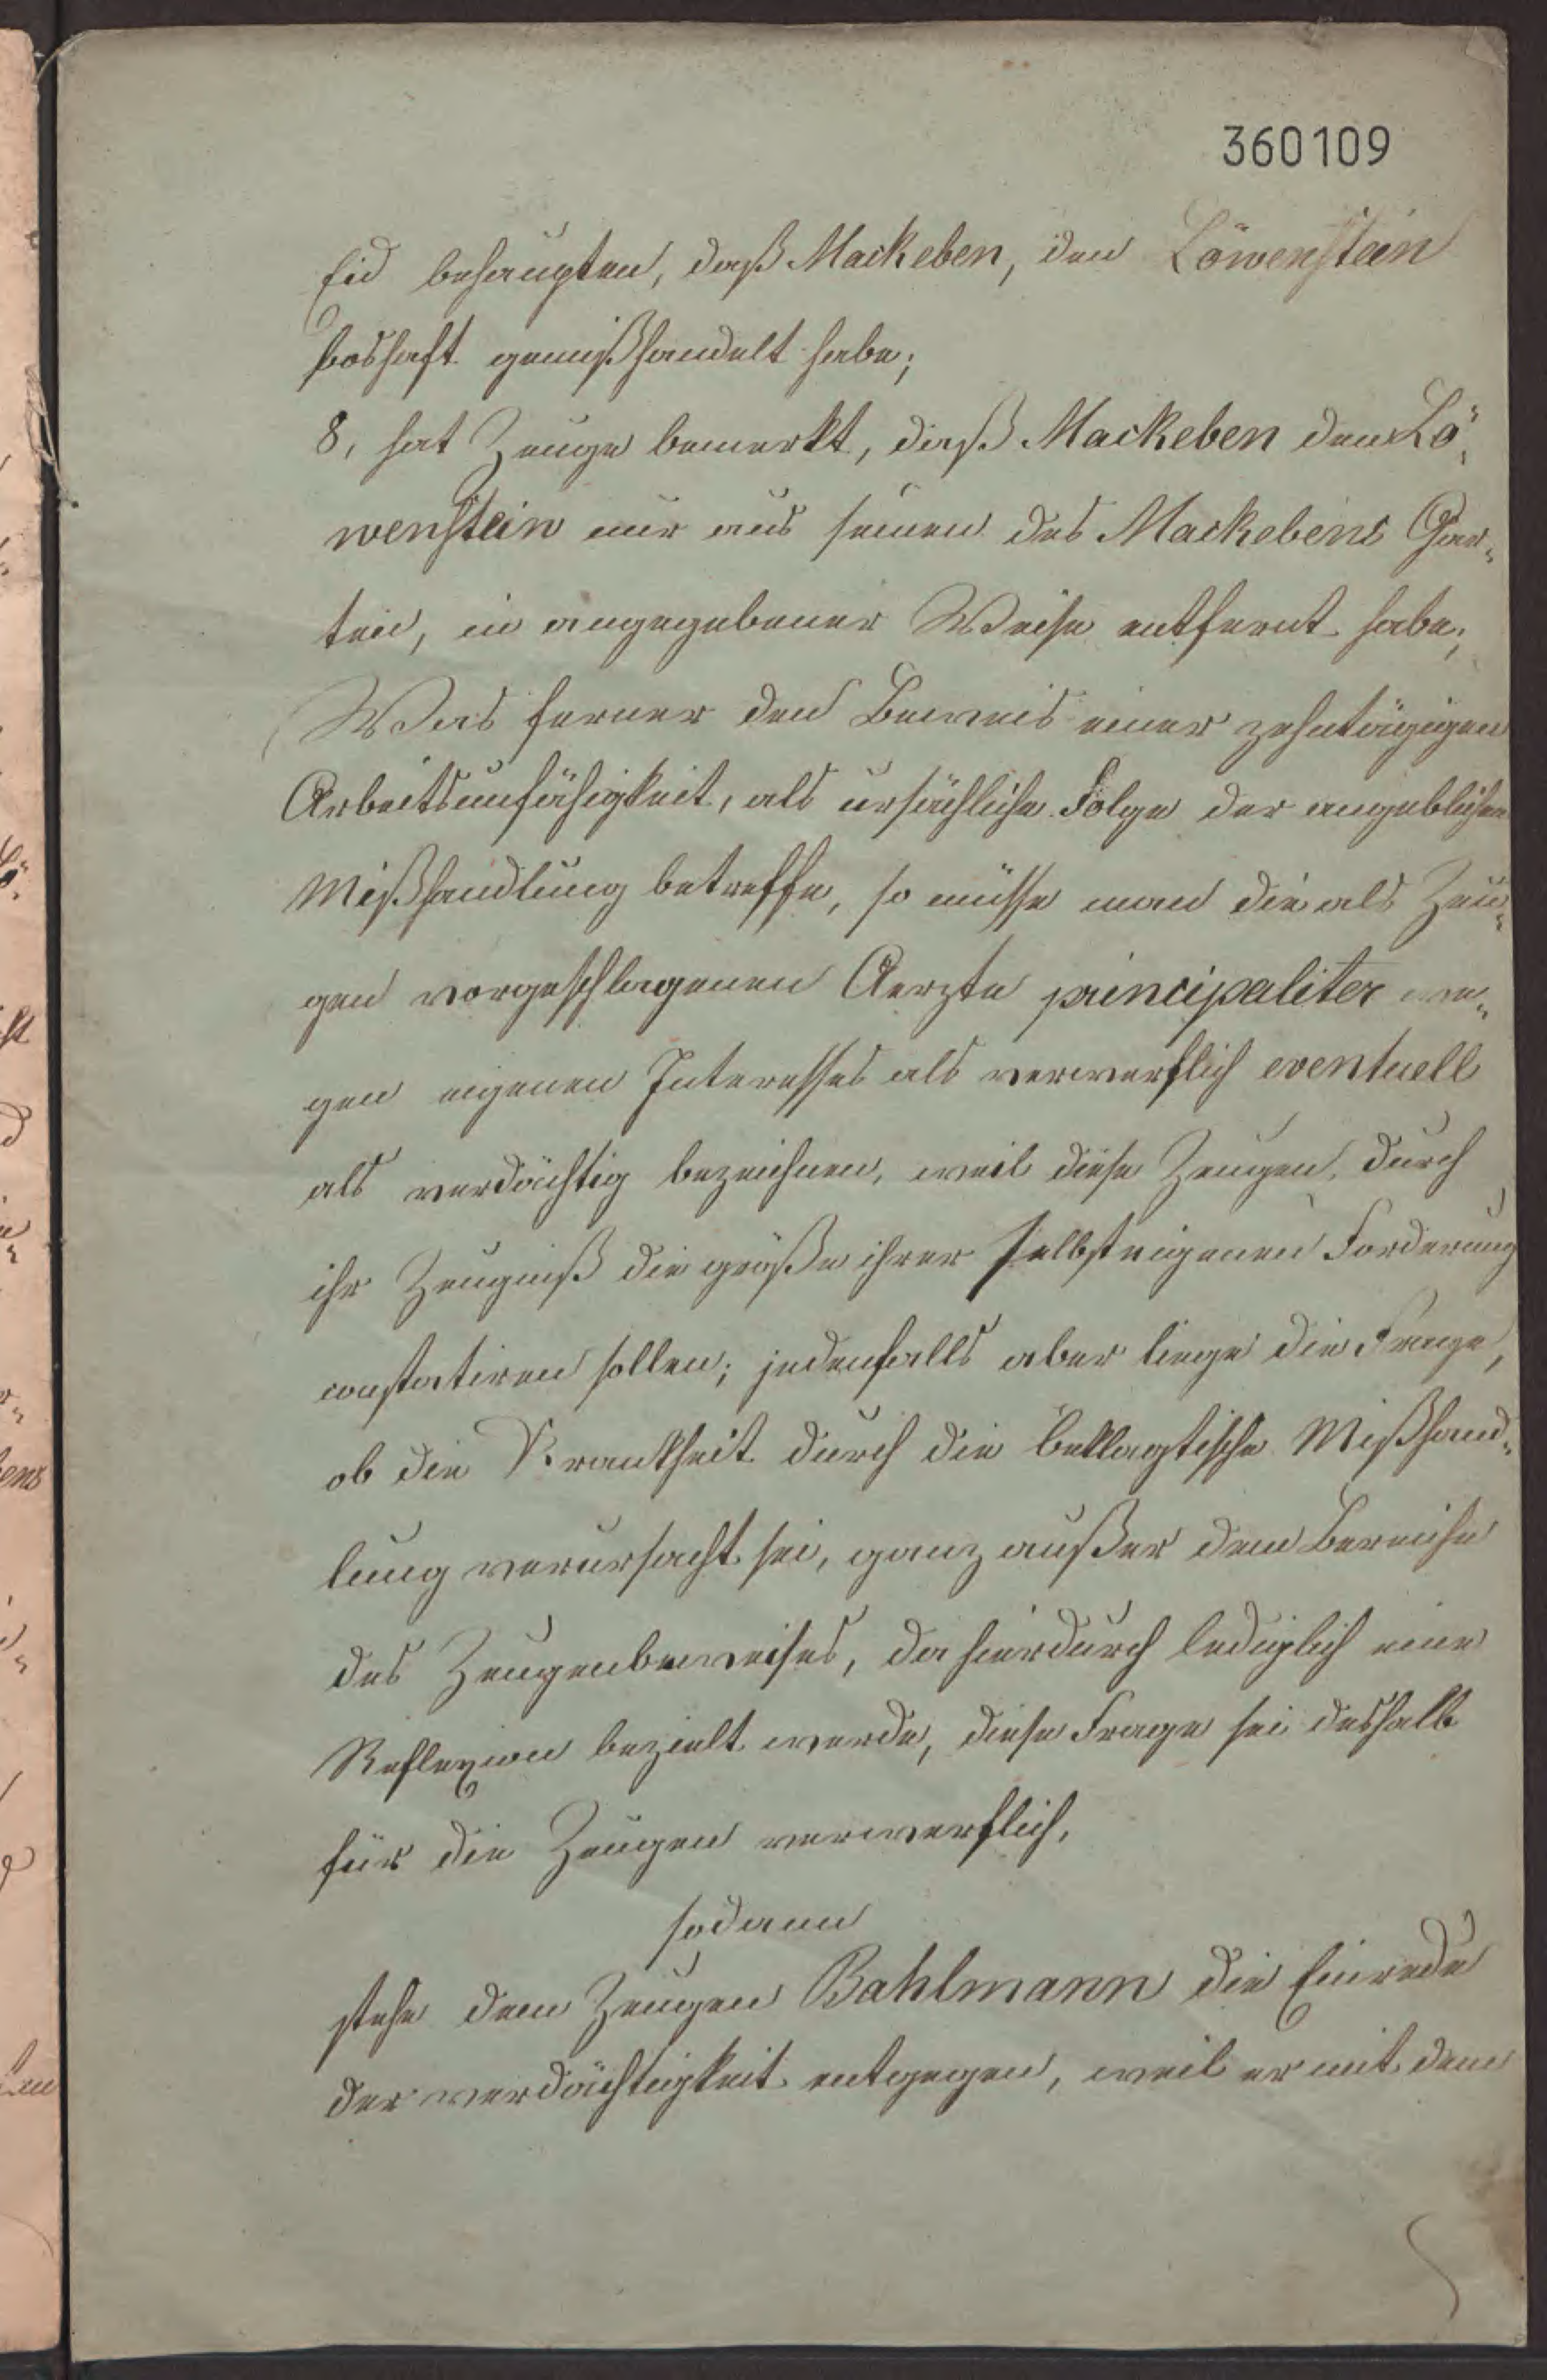 360109
Eid behaupten, daß Mackeben, den Löwenstein
boshaft gemißhandelt habe;
8, hat Zeuge bemerkt, daß Mackeben den Lö,,
wenstein nur aus seinem des Mackebens Gar„
ten, in angegebener Weise entfernt habe;
Was ferner den Beweis einer zehntägigen
Arbeitsunfähigkeit, als ursächliche Folge der angeblichen
Mißhandlung betreffe, so müsse man die als Zeu„
gen vorgeschlagenen Aerzte principaliter we„
gen eigenen Interesses als verwerflich eventuell
als verdächtig bezeichnen, weil diese Zeugen durch
ihr Zeugniß die größe ihrer selbsteigenen Forderung
constatiren sollen; jedenfalls aber liege die Frage,
ob die Krankheit durch die beklagtische Mißhand„
lung verursacht sei, ganz außer dem Bereiche
des Zeugenbeweises, da hierdurch lediglich eine
Reflexion bezielt werde, diese Frage sei deshalb
für die Zeugen verwerflich,
sodann
stehe dem Zeugen Bahlmann die Einrede
der verdächtigkeit entgegen, weil er mit dem